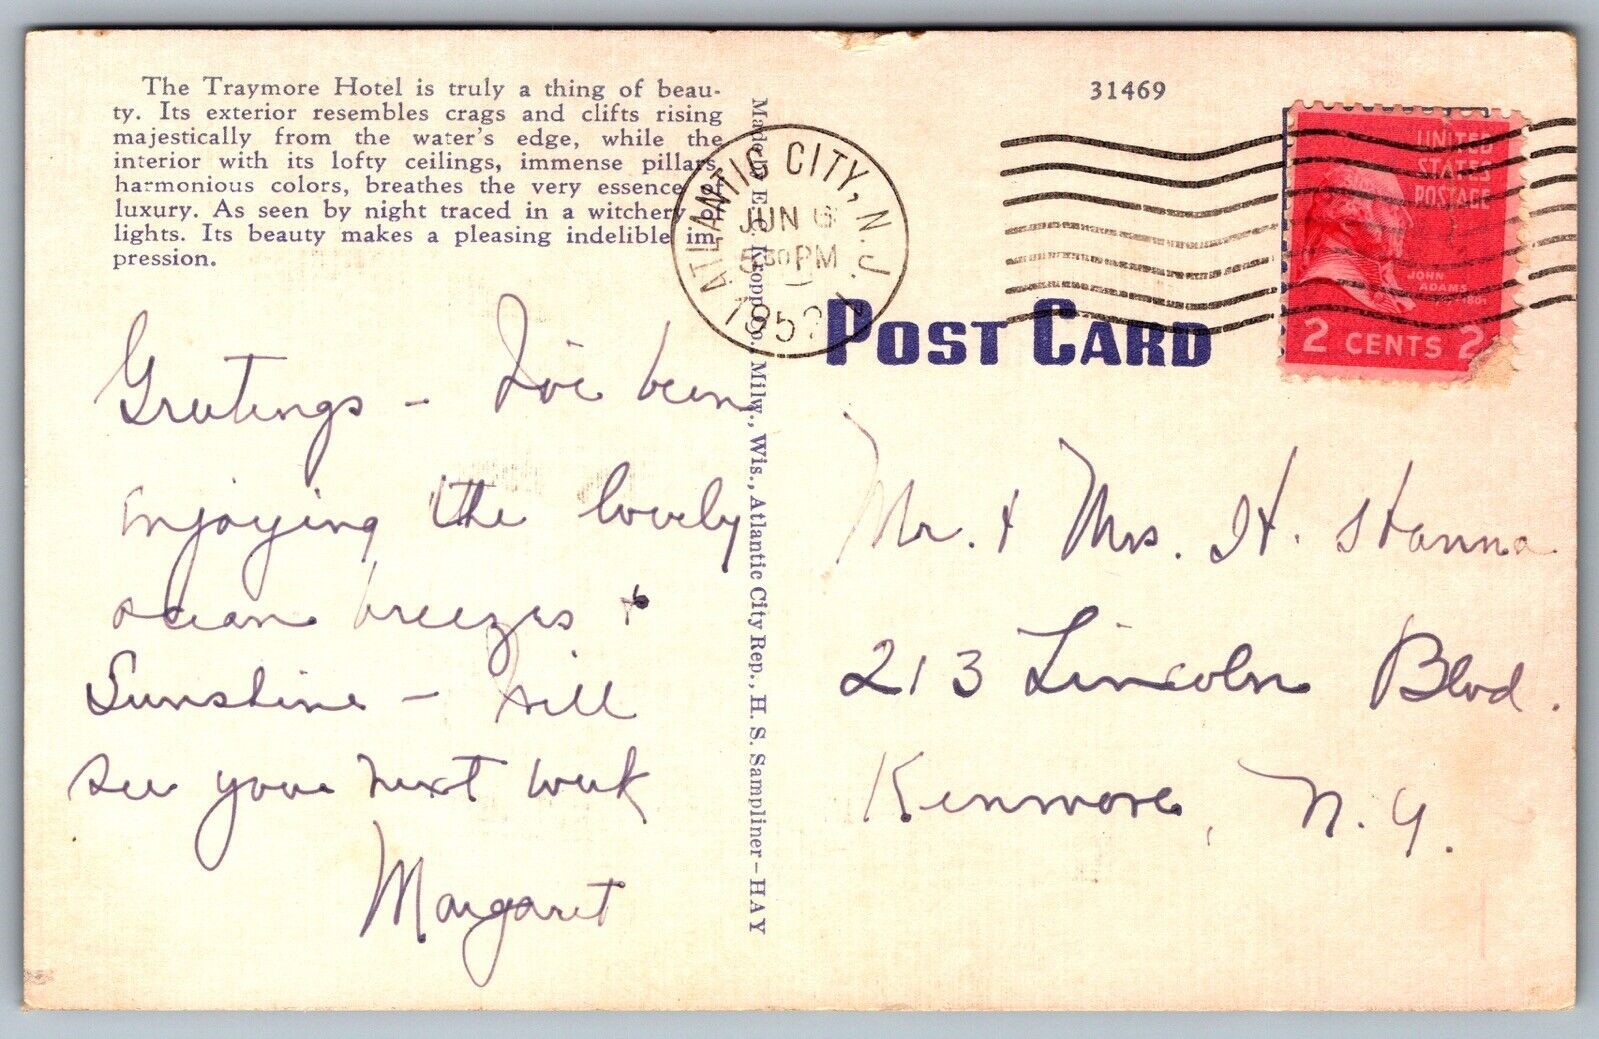 The Traymore Hotel is truly a thing of beau-
ty. Its exterior resembles crags and clifts rising
majestically from the water's edge, while the
interior with its lofty ceilings, immense pillars,
harmonious colors, breathes the very essence of
luxury. As seen by night traced in a witchery of
lights. Its beauty makes a pleasing indelible im-
pression.
Greetings - I've been
enjoying the lovely
ocean breezes +
Sunshine - Will
see you next week
Margaret
Made by E. C. Kropp Co., Milw., Wis., Atlantic City Rep., H. S. Sampliner-HAY
ATLANTIC CITY, N.J.
JUN 6
5:30 PM
31469
UNITED
STATES
POSTAGE
JOHN
ADAMS
1801
2 CENTS 2
POST CARD
Mr. + Mrs. H. Hanna
213 Lincoln Blvd.
Kenmore, N.Y.